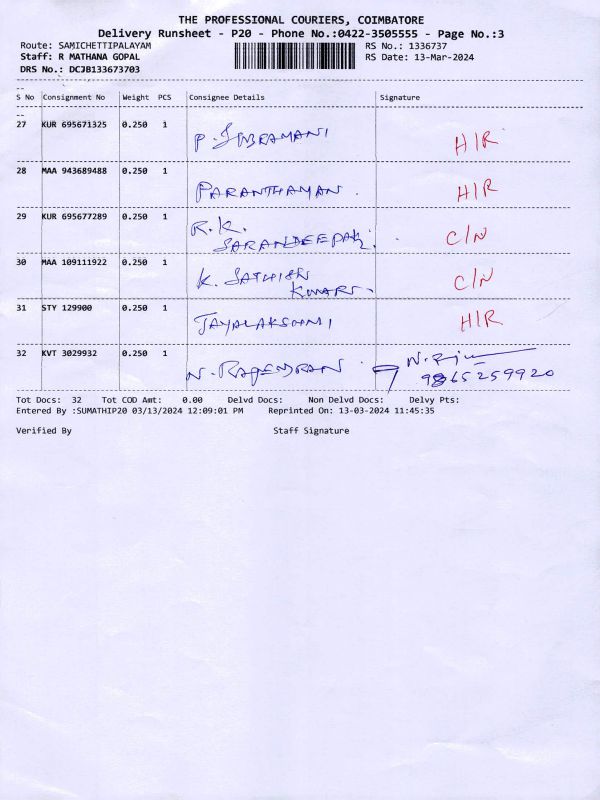 THE PROFESSIONAL COURIERS, COIMBATORE
Delivery Runsheet - P20 - Phone No.:0422-3505555 - Page No.:3
Route: SAMICHETTIPALAYAM RS No.: 1336737
Staff: R MATHANA GOPAL RS Date: 13-Mar-2024
DRS No.: DCJB133673703
S No Consignment No Weight PCS Consignee Details Signature
27 KUR 695671325 0.250 1 P. H/R
28 MAA 943689488 0.250 1 PARANTHAMAN . H/R
29 KUR 695677289 0.250 1 R.K. C/N
SARANDEEPAK.
30 MAA 109111922 0.250 1 K. SATHISH C/N
KUMAR.
31 STY 129900 0.250 1 JAYALAKSHMI H/R
32 KVT 3029932 0.250 1 N. RAJENDRAN
9865259920
Tot Docs: 32 Tot COD Amt: 0.00 Delvd Docs: Non Delvd Docs: Delvy Pts:
Entered By :SUMATHIP20 03/13/2024 12:09:01 PM Reprinted On: 13-03-2024 11:45:35
Verified By Staff Signature